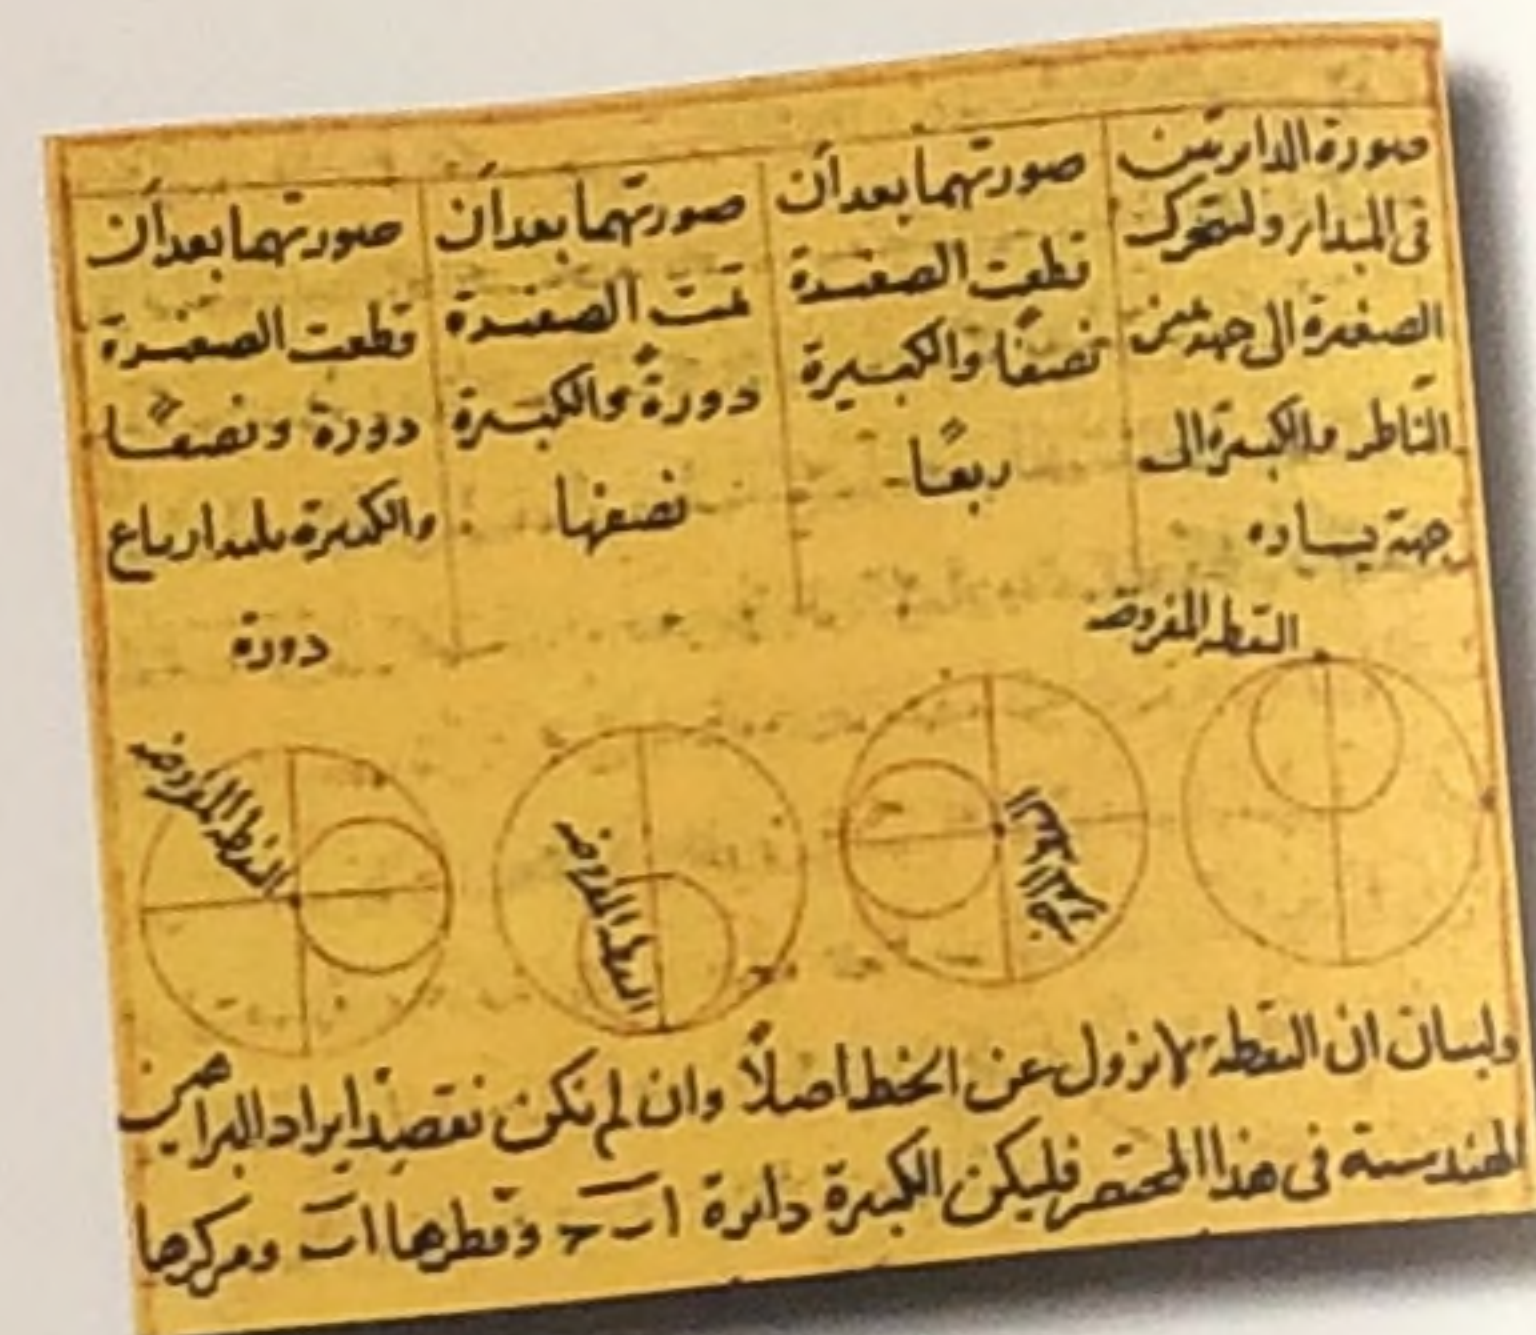 صورة الدايرتين
فى المبدا ولتتحرك
الصغيرة الى جهة يمين
الناظر والكبيرة الى
جهة يساره
صورتهما بعد أن
قطعت الصغيرة
نصفًا والكبيرة
ربعًا
صورتهما بعد أن
تمت الصغيرة
دورةً والكبيرة
نصفها
صورتهما بعد أن
قطعت الصغيرة
دورة ونصفًا
والكبيرة ثلثة ارباع
دورة
النقطة المفروضة
النقطة المفروضة
النقطة المفروضة
النقطة المفروضة
ولبيان ان النقطة لا تزول عن الخط اصلاً وان لم نكن نقصد ايراد البراهين
الهندسية فى هذا المختصر فليكن الكبيرة دائرة اب ح وقطرها اب ومركزها